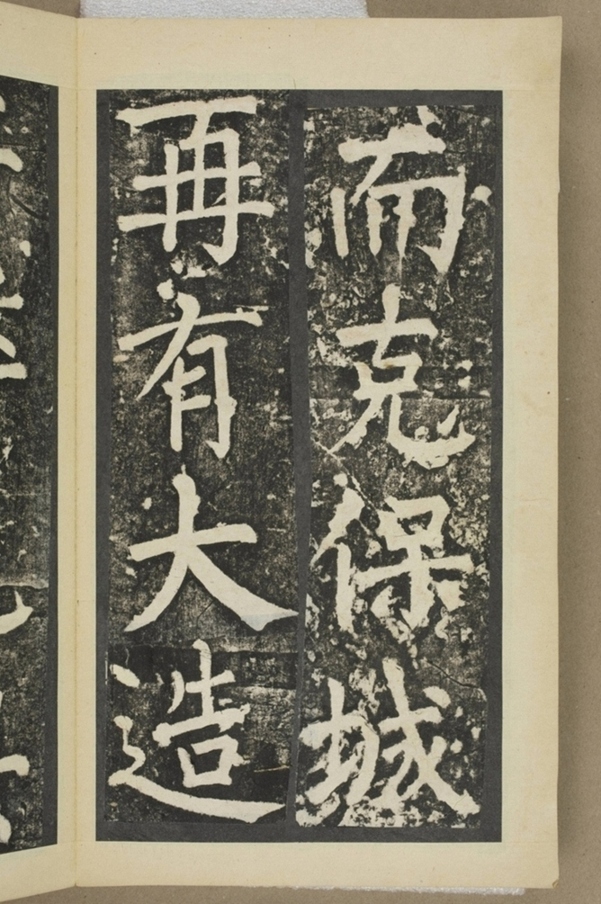 而克保城
再有大造